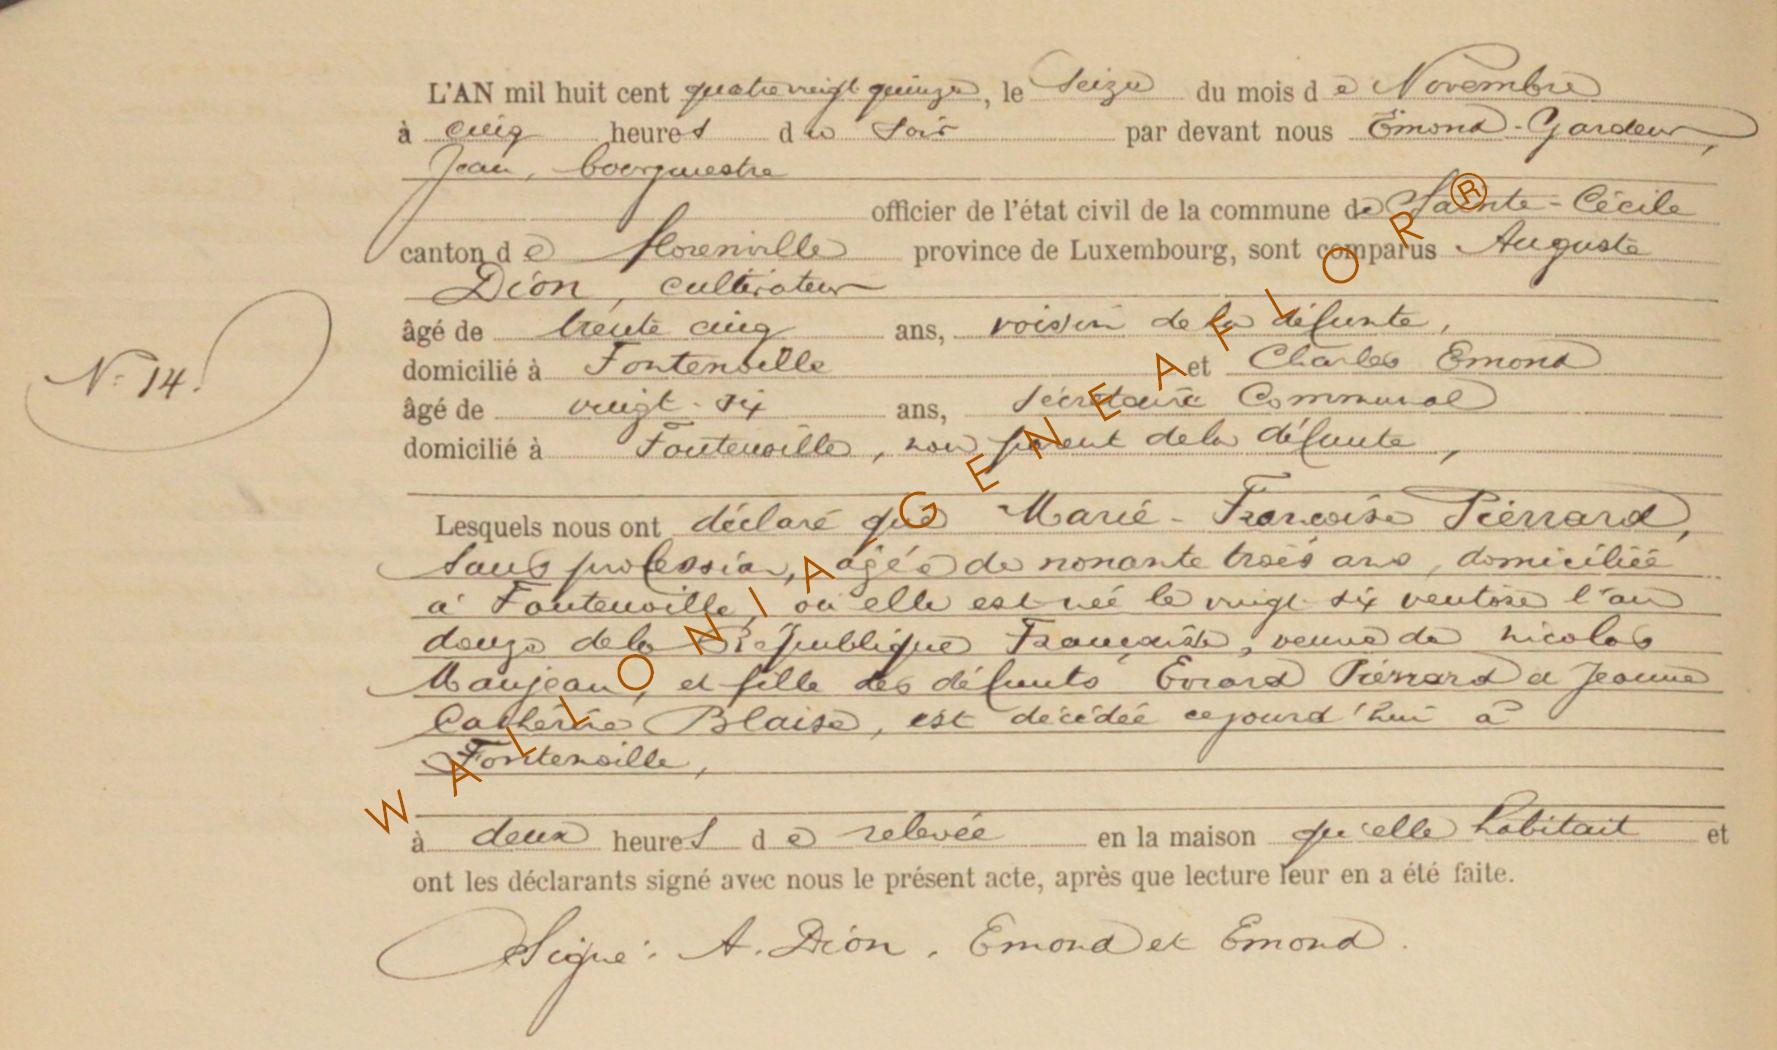 L'AN mil huit cent quatre vingt quinze, le Seize du mois de Novembre
à cinq heures du Soir par devant nous Emond-Gardeur,
Jean, bourgmestre
officier de l'état civil de la commune de Sainte-Cécile
canton de florenville province de Luxembourg, sont comparus Auguste
Dion, cultivateur
âgé de trente cinq ans, voisin de la défunte,
domicilié à Fontenoille et Charles Emond
N° 14.
âgé de vingt-six ans, Sécrétaire Communal
domicilié à Fontenoille, non parent de la défunte,
Lesquels nous ont déclaré que Marie-Françoise Piérrard,
Sans profession, agée de nonante trois ans, domiciliée
à Fontenoille, où elle est née le vingt-six ventose l'an
douze de la République Française, veuve de Nicolas
Manjean, et fille des défunts Evrard Piérrard et Jeanne
Catherine Blaise, est décédée cejourd'hui à
Fontenoille,
à deux heures de relevée en la maison qu'elle habitait et
ont les déclarants signé avec nous le présent acte, après que lecture leur en a été faite.
Signé: A. Dion, Emond et Emond.
WALLONIA-GENEAFLOR®